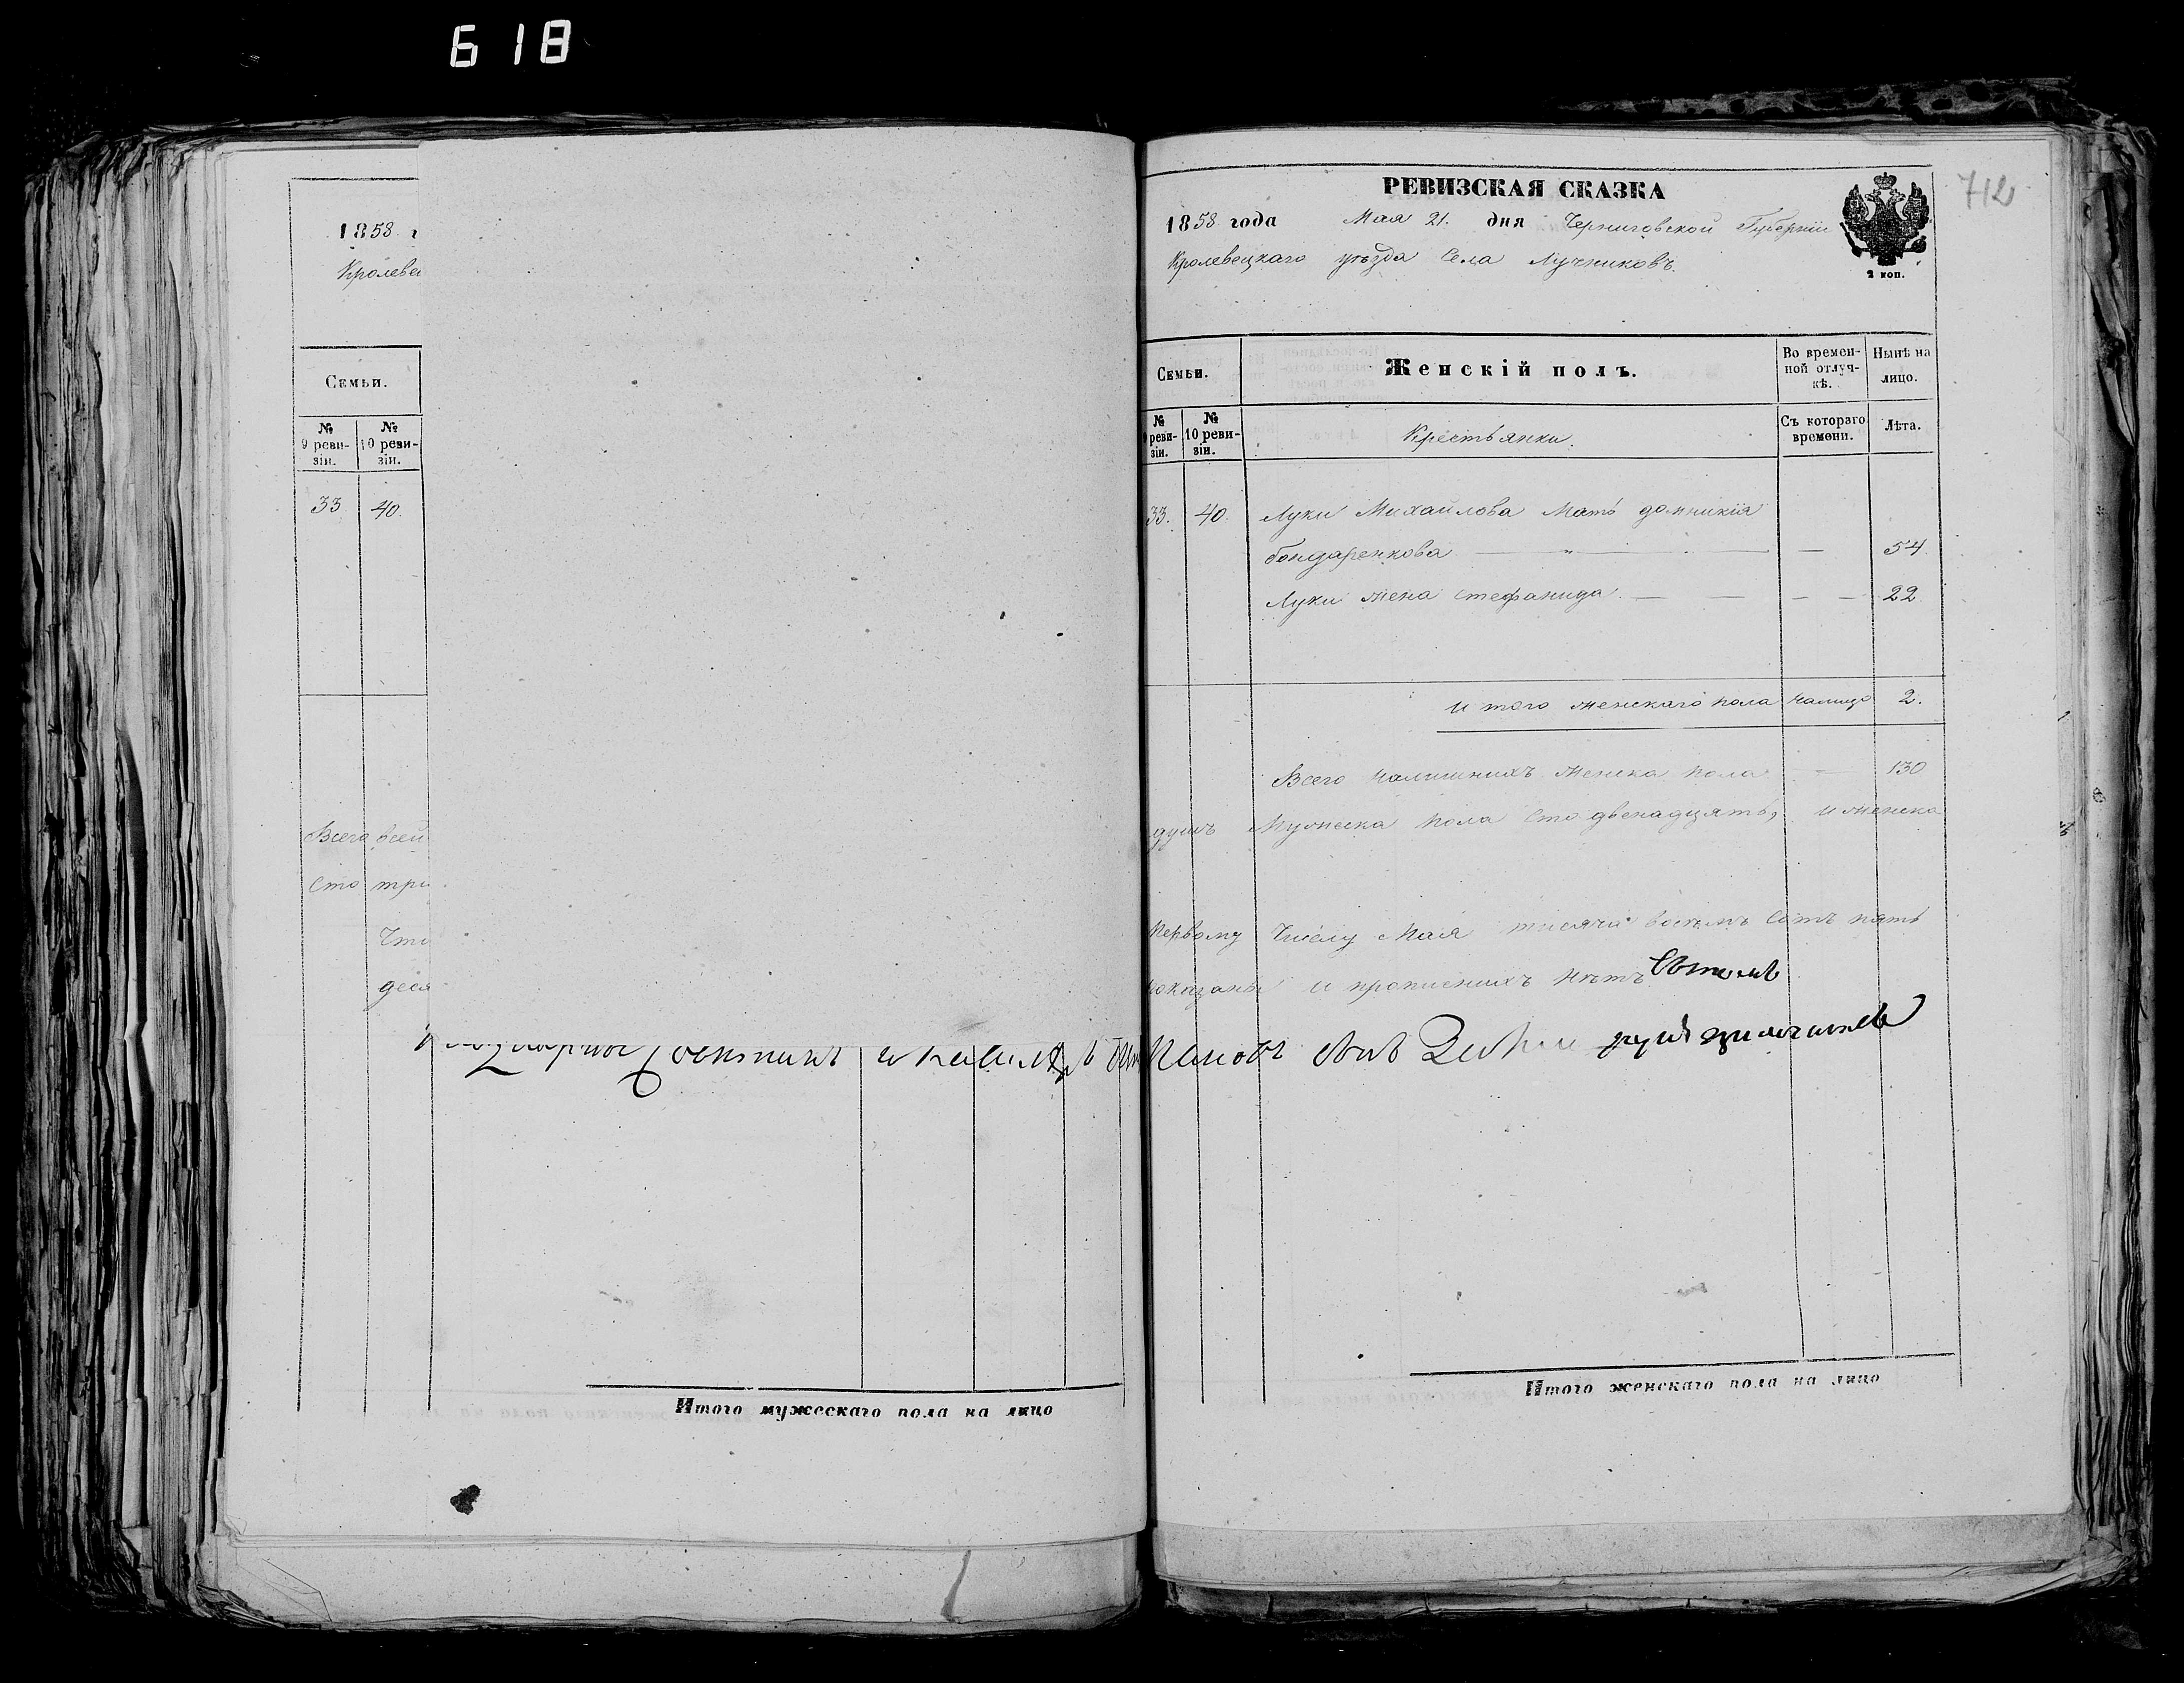 618
1858 г
Кролевец
Семьи.
№ 9 ревизіи.
№ 10 ревизіи.
33 40.
Всего всей
сто три
Что
деся
Итого мужескаго пола на лицо
712
РЕВИЗСКАЯ СКАЗКА
1858 года Мая 21. дня Черниговской Губерніи
Кролевецкаго уѣзда Села Лучниковъ.
2 коп.
Семьи.
Женскій полъ.
Во временной отлучкѣ.
Нынѣ на лицо.
№ 9 ревизіи.
№ 10 ревизіи.
Крестьянки.
Съ котораго времени.
Лѣта.
33. 40. Луки Михайлова Мать домникія
бондаренкова — " — — 54.
Луки жена стефанида. — — — — 22.
и того женскаго пола налицо 2.
Всего наличнихъ женска пола — 130
душъ Мужеска пола Сто двенадцять, и женска
первому Числу Мая тисяча восемъ Сотъ пять
показаны и прописнихъ нѣтъ
Итого женскаго пола на лицо